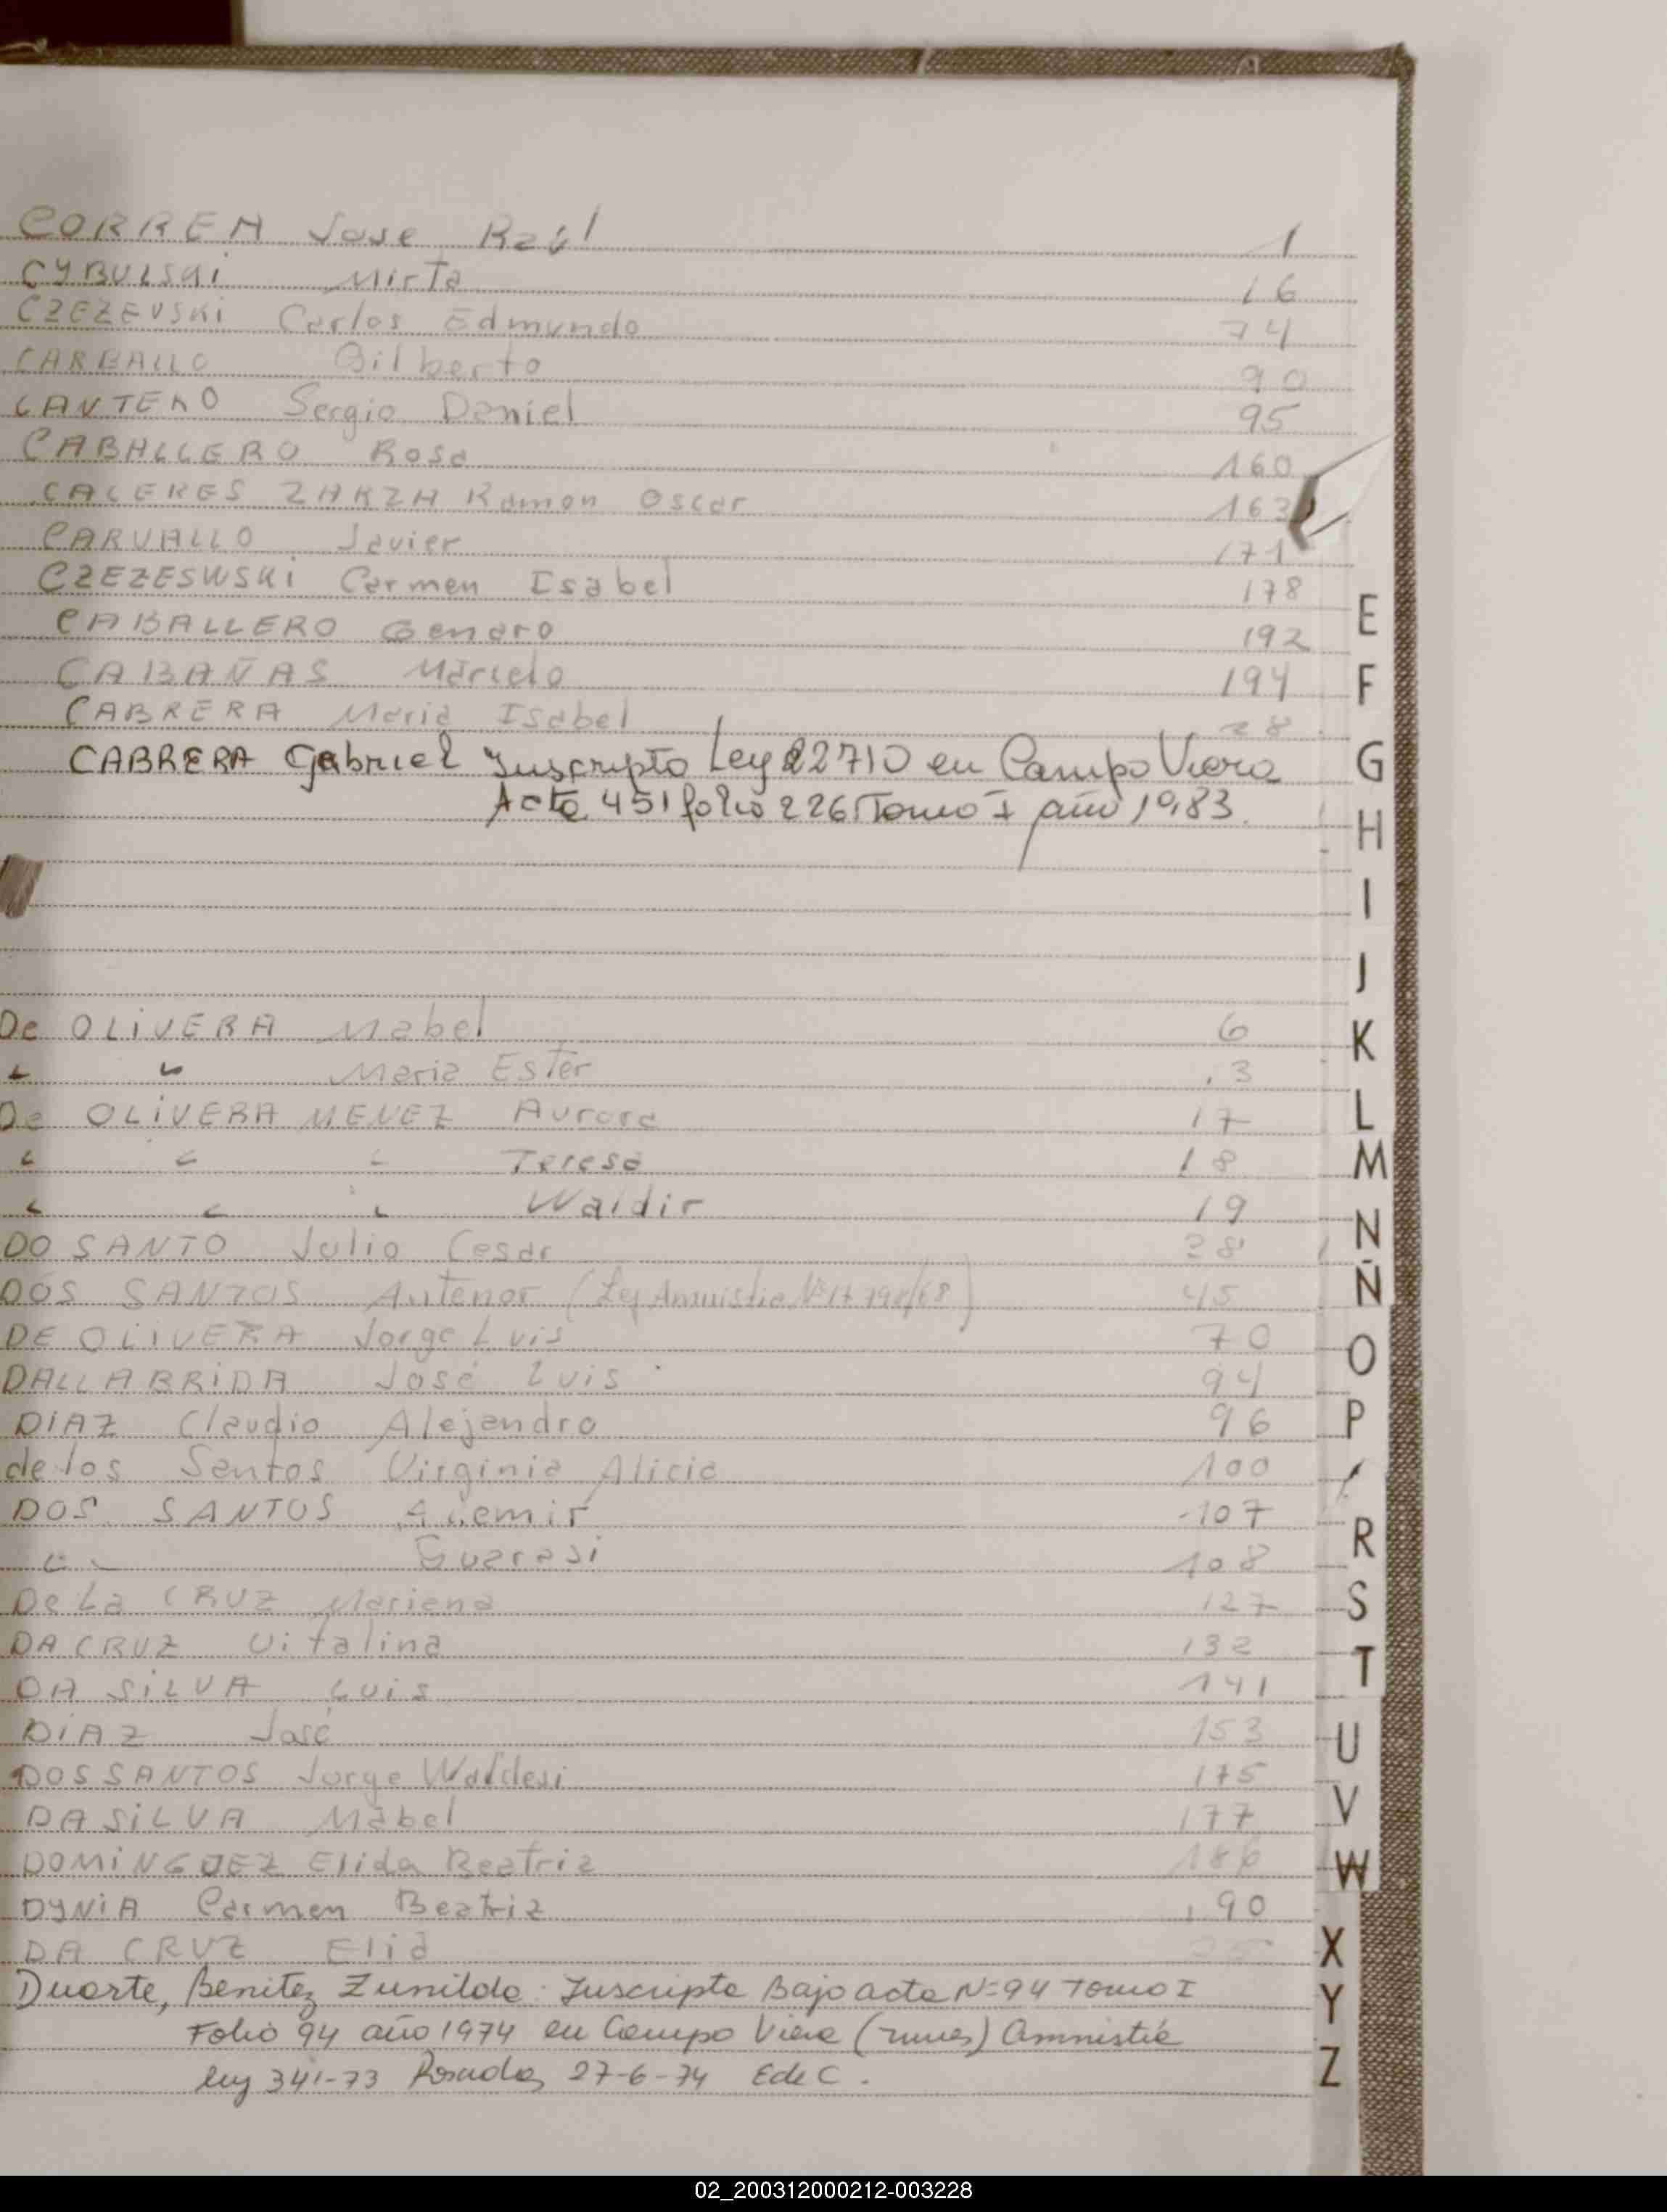 CORREA Jose Raúl 1
CYBULSKi MirTa 16
CZEZEVSKi Carlos Edmundo 74
CARBALLO Gilberto 90
CANTERO Sergio Daniel 95
CABALLERO Rosa 160
CACERES ZARZA Ramon Oscar 163
CARVALLO Javier 171
CZEZESWSKi Carmen Isabel 178
CABALLERO Genaro 192
CABAÑAS Marcelo 194
CABRERA Maria Isabel 28
CABRERA Gabriel Inscripto Ley 22710 en Campo Viera
Acta 451 folio 226 Tomo I año 1983.
E
F
G
H
I
J
K
L
M
N
Ñ
O
P
R
S
T
U
V
W
X
Y
Z
De OLiVERA Mabel 6
" " Maria Ester 3
De OLiVERA MENEZ Aurora 17
" " " Teresa 18
" " " Waldir 19
DO SANTO Julio Cesar 28
DOS SANTOS Antenor (Ley Amnistia Nº 17.798/68) 45
DE OLiVERA Jorge Luis 70
DALLABRiDA José Luis 94
DIAZ Claudio Alejandro 96
de los Santos Virginia Alicia 100
DOS SANTOS 107
" " Guarasi 108
De La CRUZ Mariana 127
DA CRUZ Vitalina 132
DA SiLVA Luis 141
DIAZ José 153
DOS SANTOS Jorge 175
DA SiLVA Mabel 177
DOMiNGUEZ Elida Beatriz 186
DYNiA Carmen Beatriz 190
DA CRUZ Elia
Duarte, Benitez Zunilda: Inscripta Bajo acta Nº 94 Tomo I
Folio 94 año 1974 en Campo Viera Amnistia
ley 341-73 Posadas 27-6-74 E de C.
02_200312000212-003228